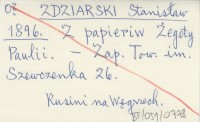 02 ZDZIARSKI Stanisław
1896. Z papieriw Żegoty
Paulii. – Zap. Tow. im.
Szewczenka 26.
Rusini na Węgrzech.